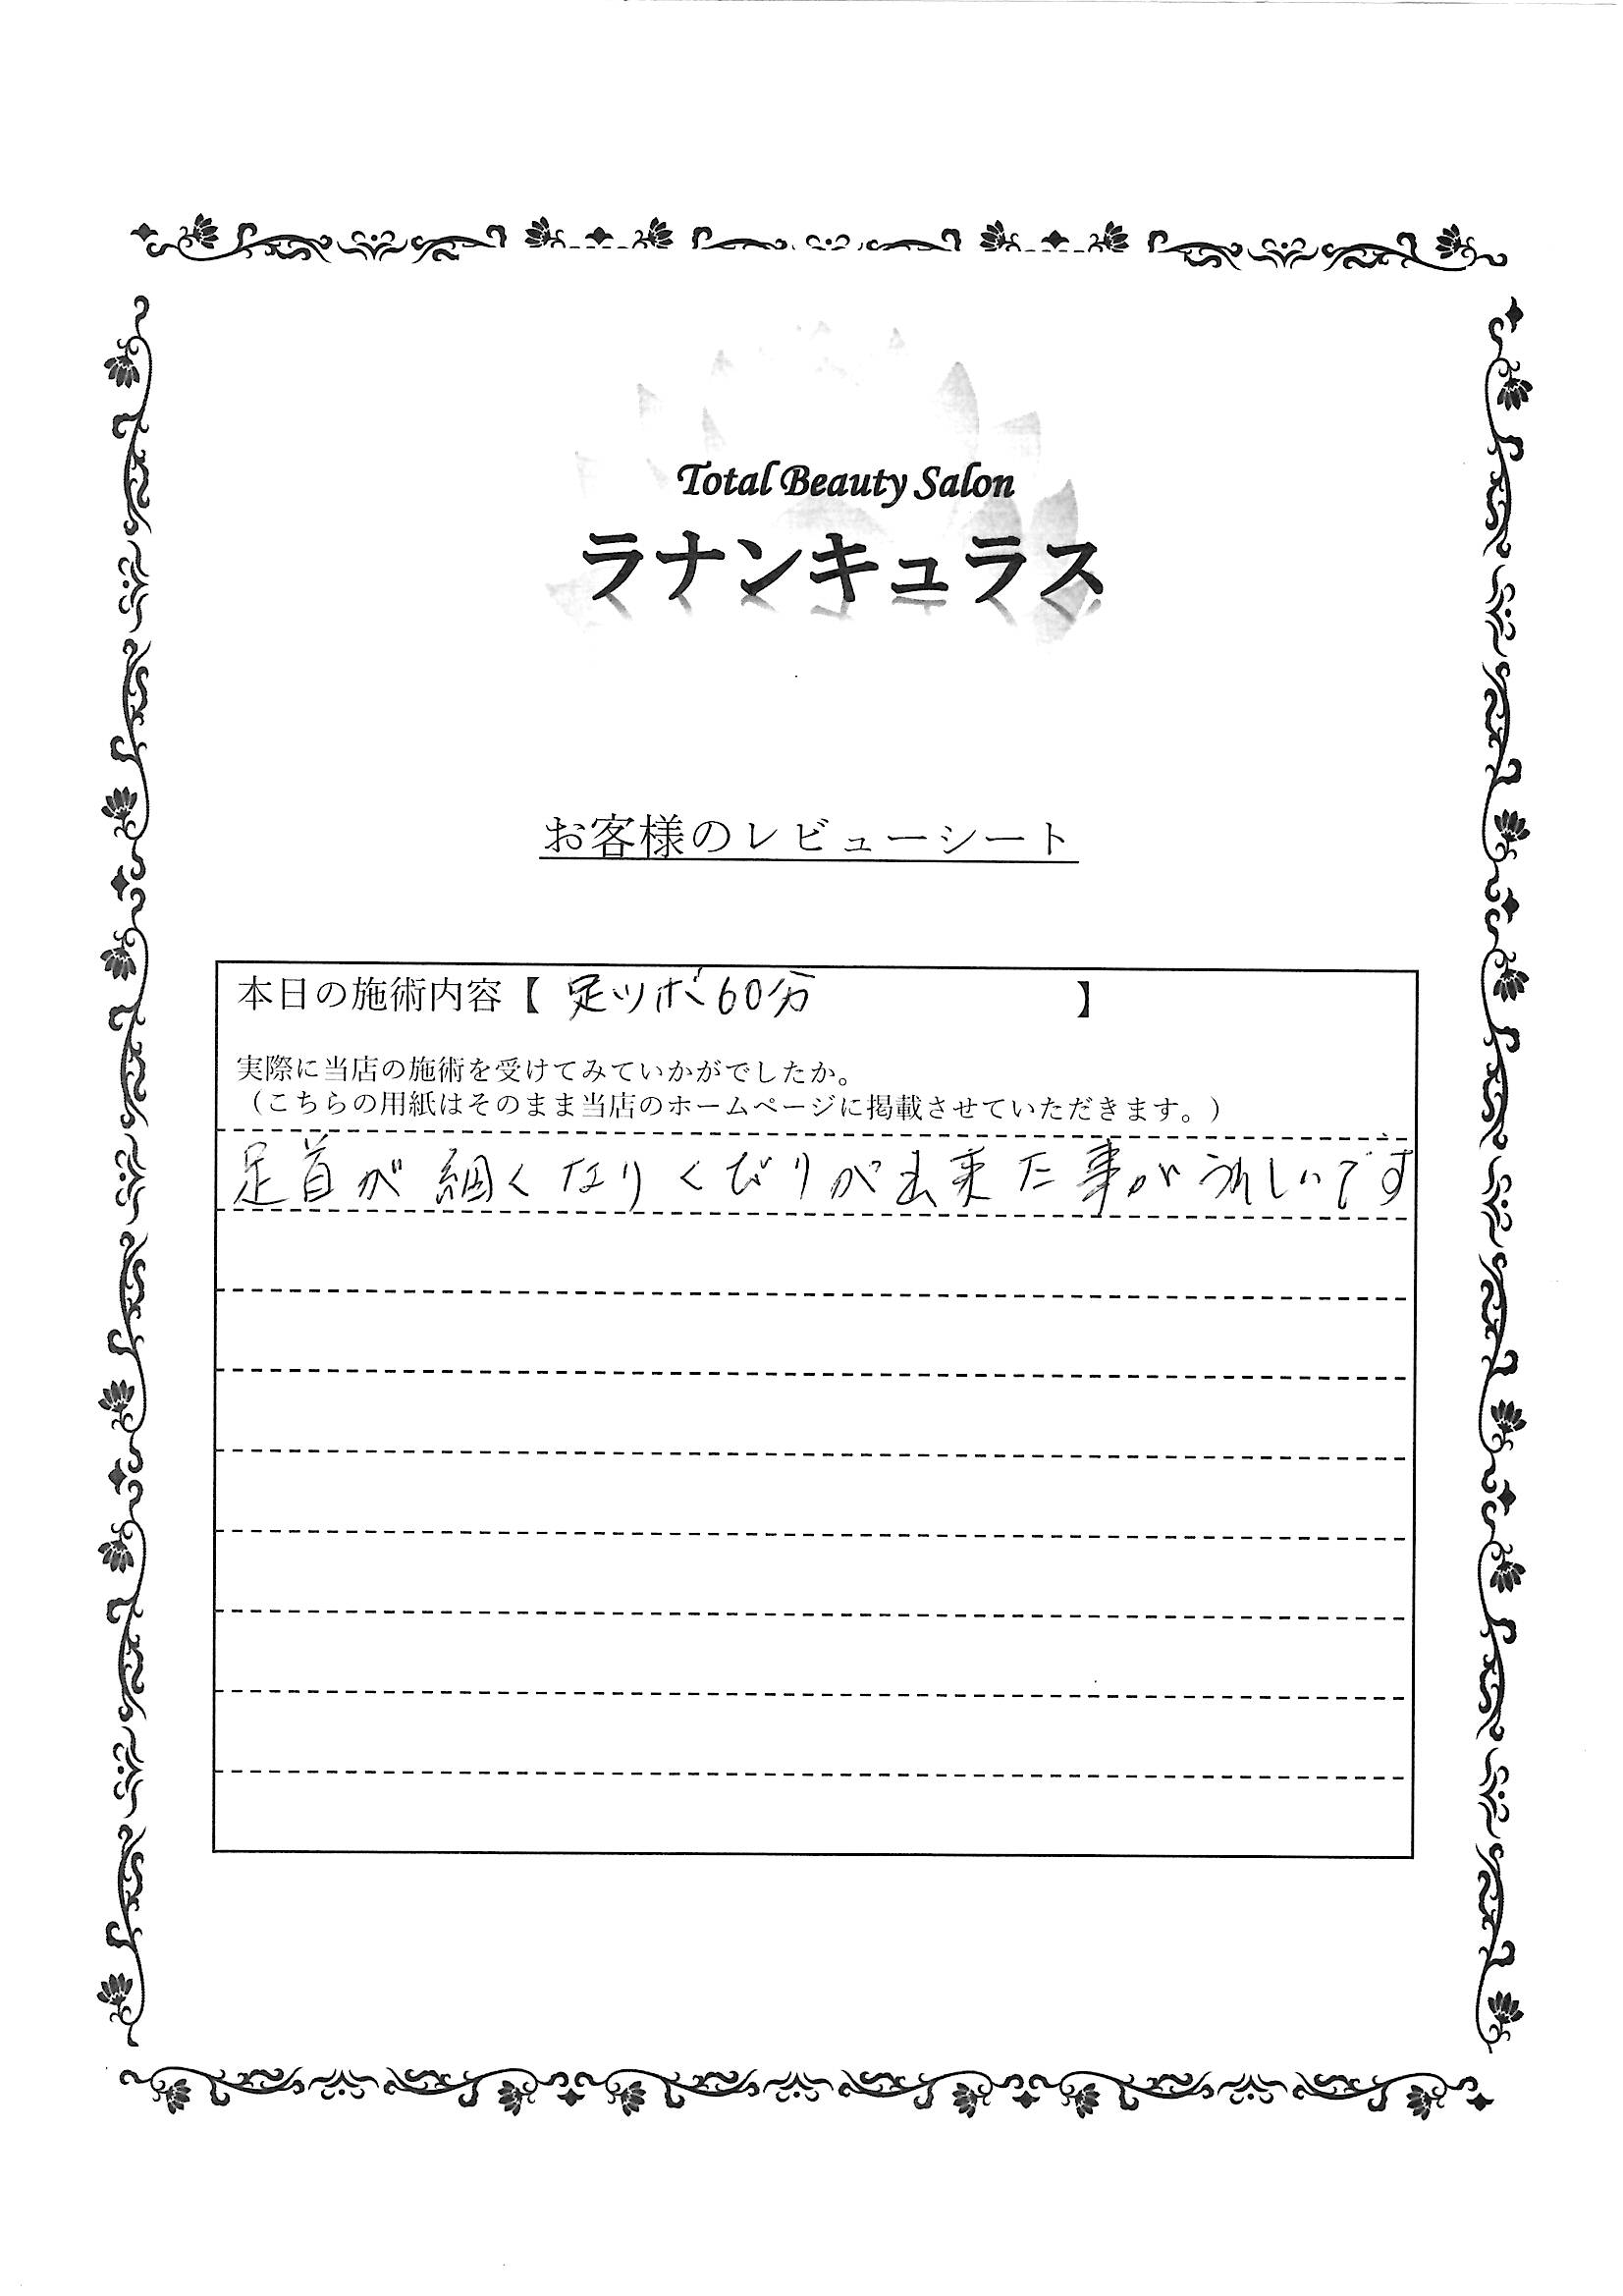 Total Beauty Salon
ラナンキュラス
お客様のレビューシート
本日の施術内容【 足ツボ60分 】
実際に当店の施術を受けてみていかがでしたか。
（こちらの用紙はそのまま当店のホームページに掲載させていただきます。）
足首が細くなりくびりが出来た事がうれしいです